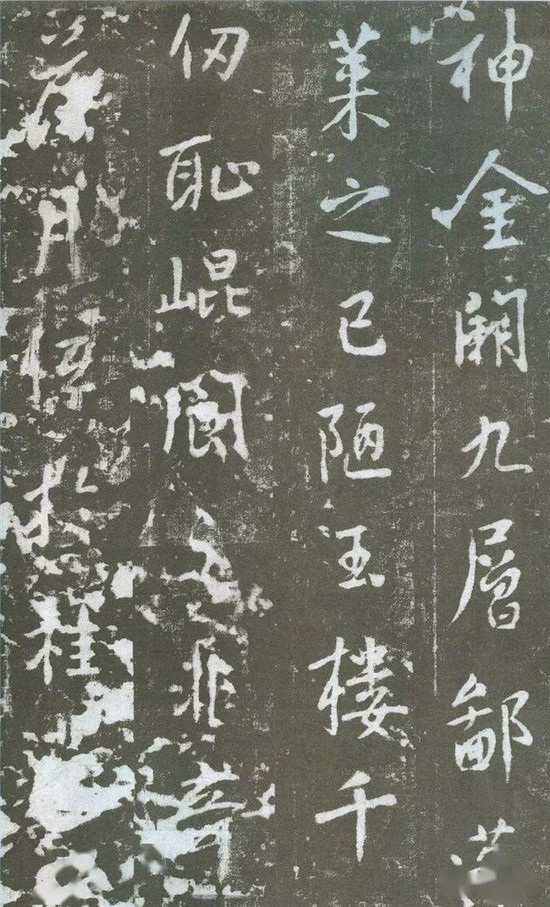 神金闕九層鄙蓬
萊之已陋玉樓千
仞恥崐閬之非奇
落月低於桂